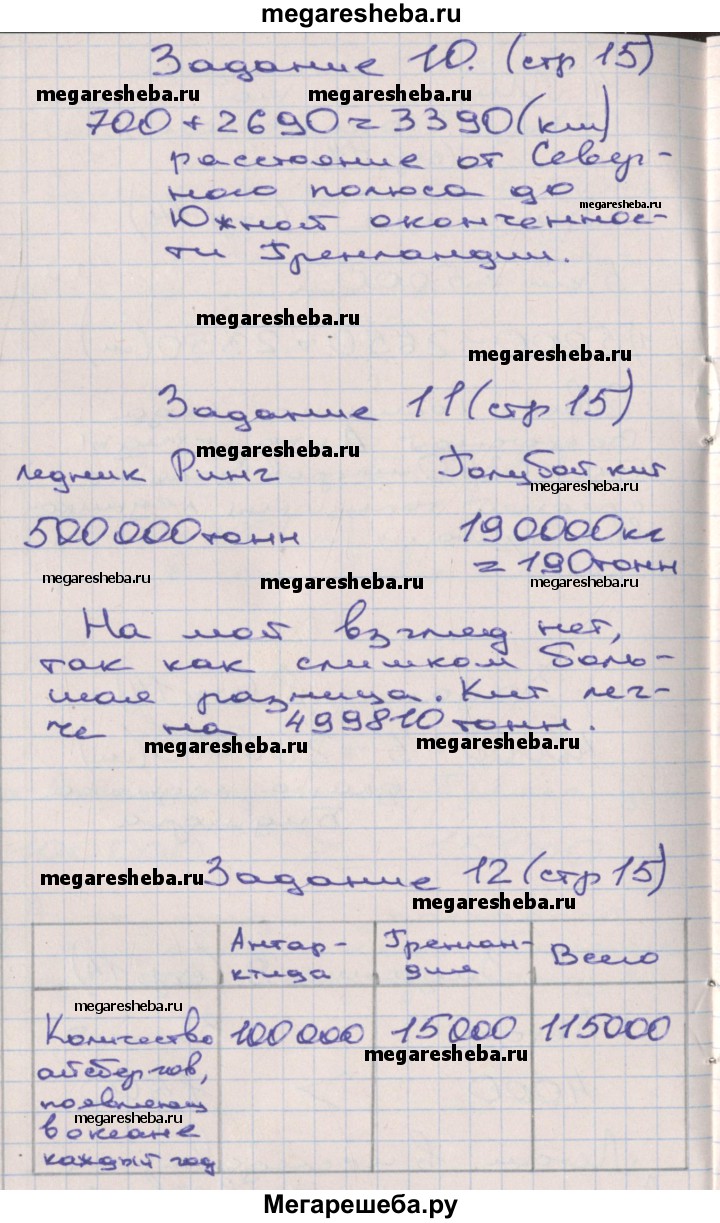 megaresheba.ru
Задание 10. (стр 15)
megaresheba.ru megaresheba.ru
700 + 2690 = 3390 (км)
расстояние от Север-
ного полюса до
megaresheba.ru
Южной оконченнос-
ти Гренландии.
megaresheba.ru
megaresheba.ru
Задание 11 (стр 15)
megaresheba.ru
ледник Ринг Голубой кит
megaresheba.ru
500 000 тонн 190000 кг
= 190 тонн
megaresheba.ru megaresheba.ru megaresheba.ru
На мой взгляд нет,
так как слишком боль-
шая разница. Кит лег-
че на 499810 тонн.
megaresheba.ru megaresheba.ru
megaresheba.ru Задание 12 (стр 15)
megaresheba.ru
Антар-
ктида
Гренлан-
дия
Всего
megaresheba.ru
Количество
айсбергов,
появляющ
megaresheba.ru
в океане
каждый год
100 000 15 000 115000
megaresheba.ru
Мегарешеба.ру